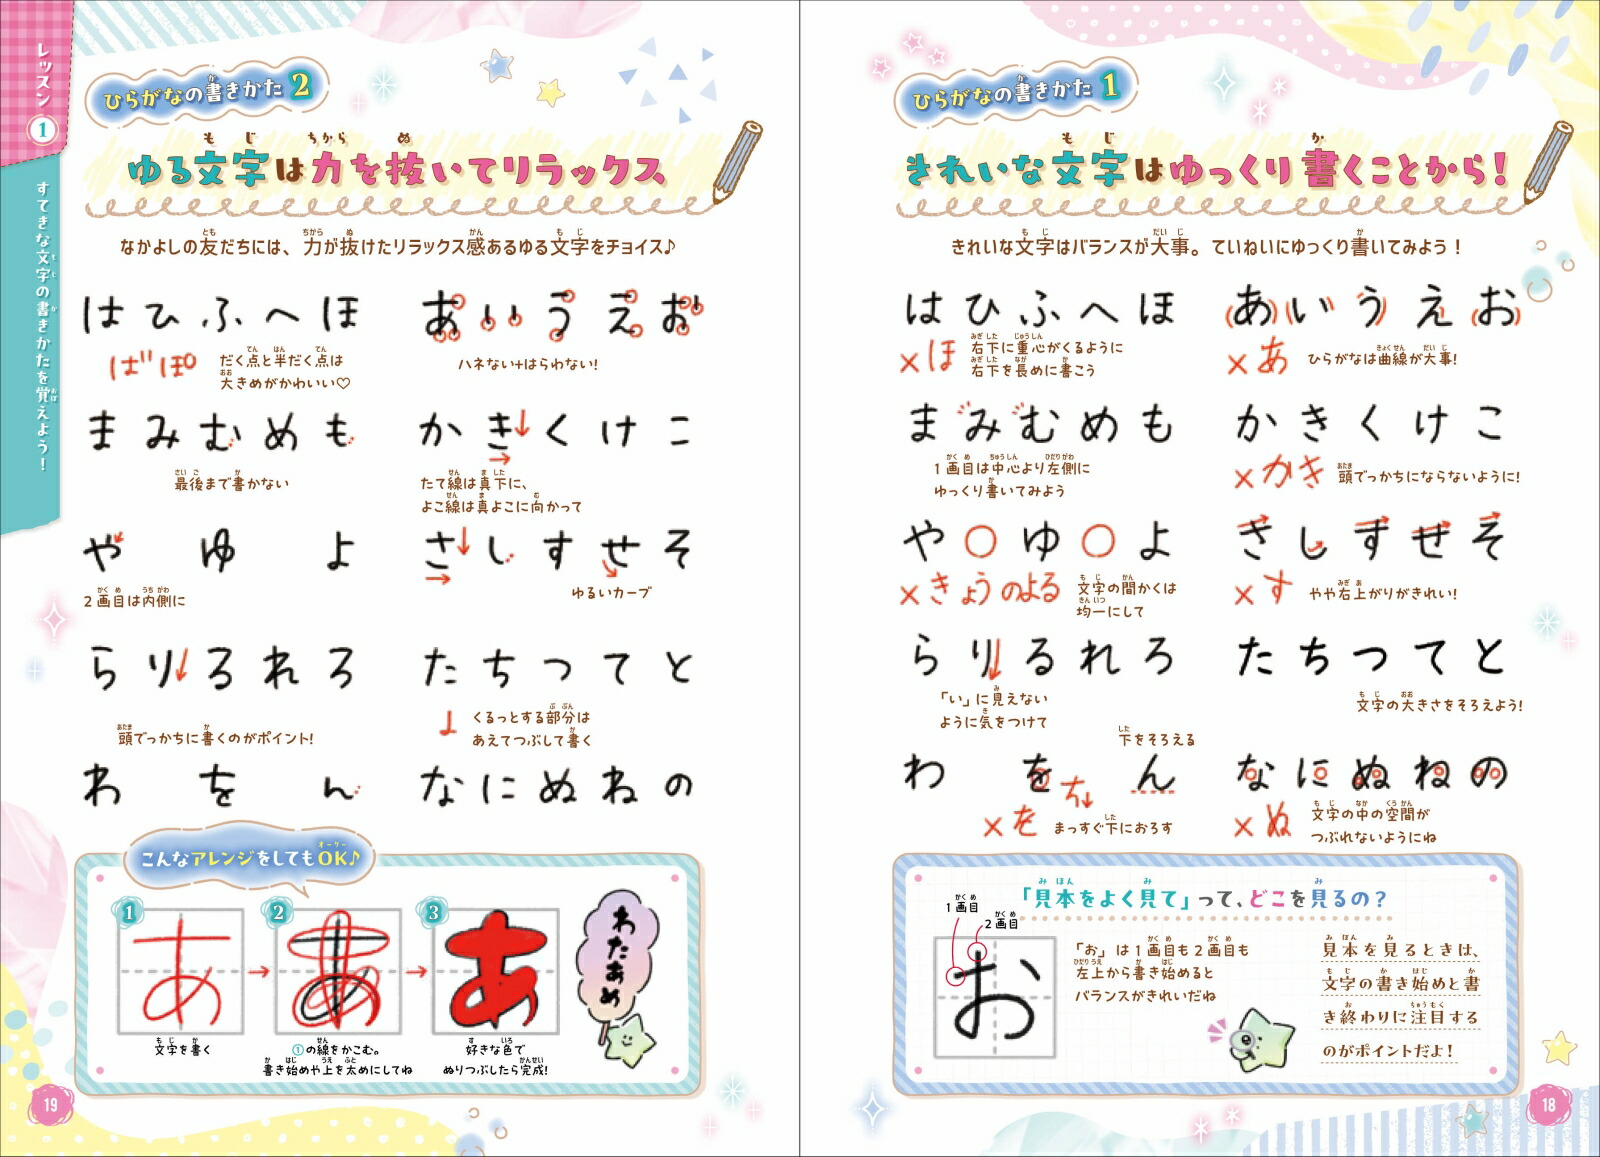 ひらがなの書きかた 1
きれいな文字はゆっくり書くことから!
きれいな文字はバランスが大事。ていねいにゆっくり書いてみよう!
あいうえお
×あ
ひらがなは曲線が大事!
かきくけこ
×かき
頭でっかちにならないように!
さしすせそ
×す
やや右上がりがきれい!
たちつてと
文字の大きさをそろえよう!
なにぬねの
×ぬ
文字の中の空間が
つぶれないようにね
はひふへほ
×ほ
右下に重心がくるように
右下を長めに書こう
まみむめも
1画目は中心より左側に
ゆっくり書いてみよう
や○ゆ○よ
×きょうのよる
文字の間かくは
均一にして
らりるれろ
「い」に見えない
ように気をつけて
わをん
下をそろえる
×を
まっすぐ下におろす
「見本をよく見て」って、どこを見るの?
1画目
2画目
お
「お」は1画目も2画目も
左上から書き始めると
バランスがきれいだね
見本を見るときは、
文字の書き始めと書
き終わりに注目する
のがポイントだよ!
18
レッスン1
すてきな文字の書きかたを覚えよう!
ひらがなの書きかた 2
ゆる文字は力を抜いてリラックス
なかよしの友だちには、力が抜けたリラックス感あるゆる文字をチョイス♪
あいうえお
ハネない+はらわない!
かきくけこ
たて線は真下に、
よこ線は真よこに向かって
さしすせそ
ゆるいカーブ
たちつてと
くるっとする部分は
あえてつぶして書く
なにぬねの
はひふへほ
ばぽ
だく点と半だく点は
大きめがかわいい♡
まみむめも
最後まで書かない
やゆよ
2画目は内側に
らりるれろ
頭でっかちに書くのがポイント!
わをん
こんなアレンジをしてもOK♪
1
あ
文字を書く
2
あ
①の線をかこむ。
書き始めや上を太めにしてね
3
あ
好きな色で
ぬりつぶしたら完成!
わたあめ
19